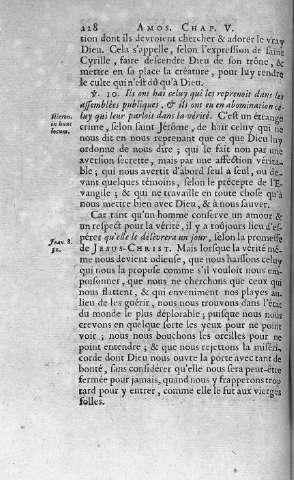 228 AMOS. CHAP. V.
tion dont ils devroient chercher & adorer le vray
Dieu. Cela s'appelle, selon l'expression de saint
Cyrille, faire descendre Dieu de son trône, &
mettre en sa place la créature, pour luy rendre
le culte qui n'est dû qu'à Dieu.
℣. 10. Ils ont haï celuy qui les reprenoit dans les
assemblées publiques, & ils ont eu en abomination ce-
luy qui leur parloit dans la vérité. C'est un étrange
Hieron.
in hunc
locum.
crime, selon saint Jérôme, de haïr celuy qui ne
nous dit en nous reprenant que ce que Dieu luy
ordonne de nous dire; qui le fait non par une
aversion secrette, mais par une affection vérita-
ble; qui nous avertit d'abord seul à seul, ou de-
vant quelques témoins, selon le précepte de l'E-
vangile; & qui ne travaille en toute chose qu'à
nous mettre bien avec Dieu, & à nous sauver.
Car tant qu'un homme conserve un amour &
un respect pour la vérité, il y a toûjours lieu d'es-
Joan. 8.
32.
pérer qu'elle le délivrera un jour, selon la promesse
de JESUS-CHRIST. Mais lorsque la vérité mê-
me nous devient odieuse, que nous haïssons celuy
qui nous la propose comme s'il vouloit nous em-
poisonner, que nous ne cherchons que ceux qui
nous flattent, & qui enveniment nos playes au
lieu de les guérir, nous nous trouvons dans l'état
du monde le plus déplorable; puisque nous nous
crevons en quelque sorte les yeux pour ne point
voir; nous nous bouchons les oreilles pour ne
point entendre; & que nous rejettons la miséri-
corde dont Dieu nous ouvre la porte avec tant de
bonté, sans considérer qu'elle nous sera peut-être
fermée pour jamais, quand nous y frapperons trop
tard pour y entrer, comme elle le fut aux vierges
folles.